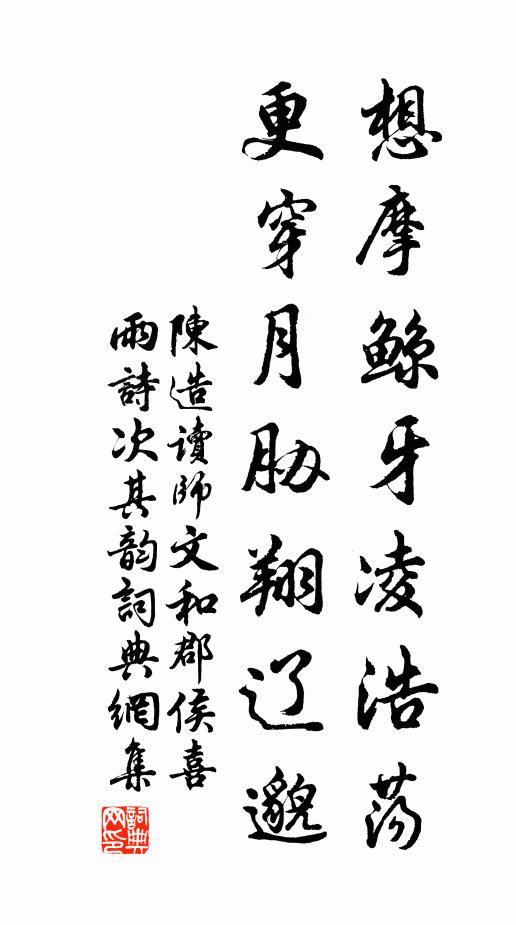 想摩鲸牙凌浩荡
更穿月胁翔辽邈
陳造讀師文和郡侯喜
雨詩次其韵詞典網集
詞典
网印